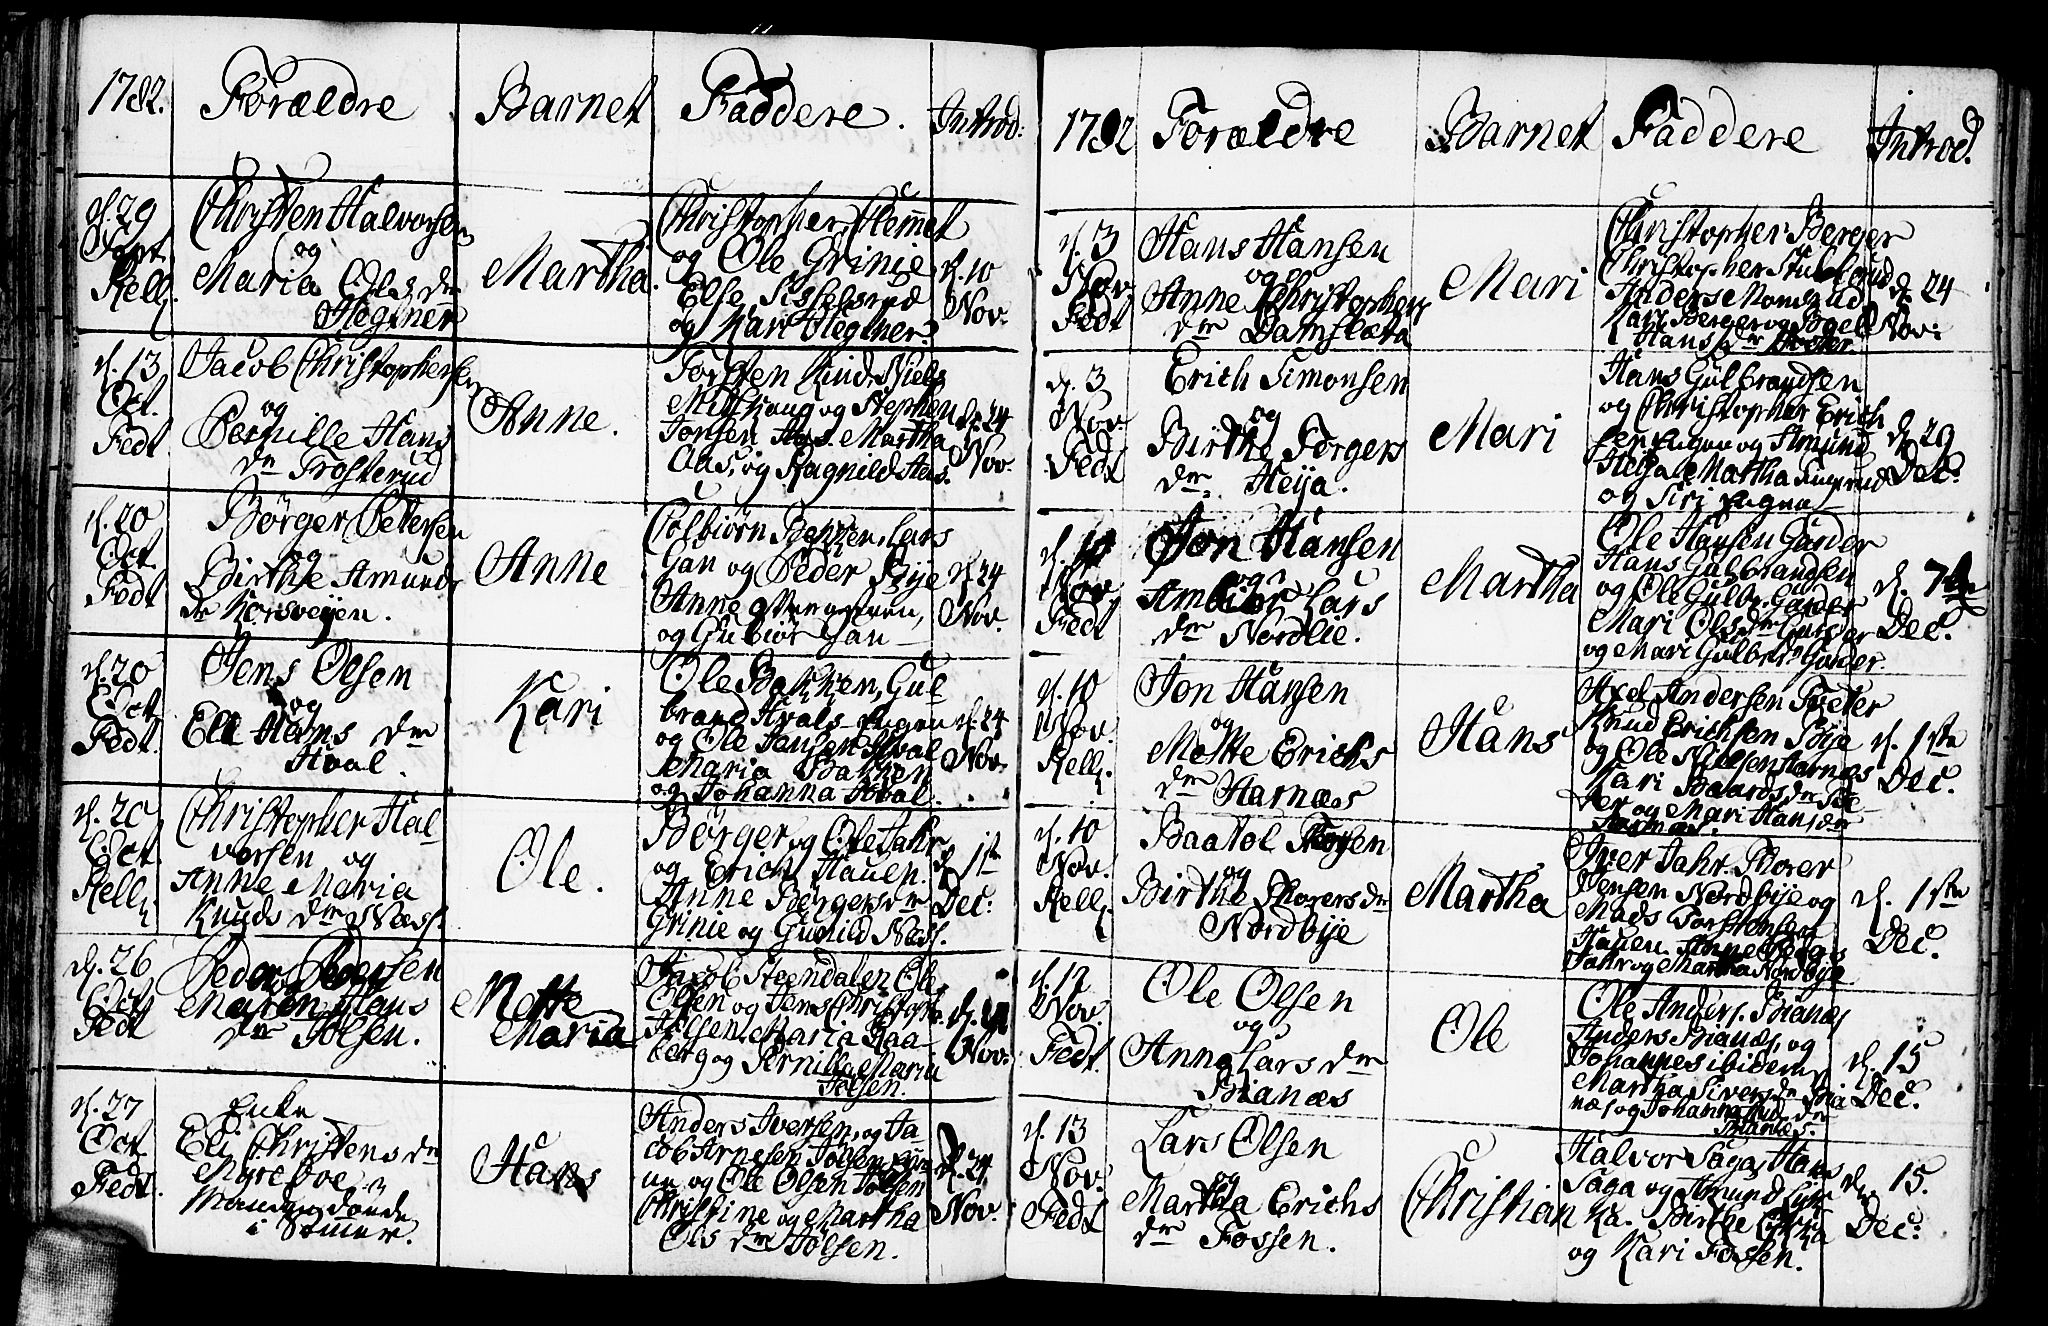 1782. Forældre Barnet Faddere. Introd:
d. 29 Sept. Kell.
Christen Halvorsen
og
Maria Ols dr
Hegtner
Martha.
Christopher, Clemet
og Ole Grinie
Else Sisselsrud
og Kari Hegtner.
d. 10
Nov.
d. 13
Oct.
Fedt
Jacob Christophersen
og
Pernille Hans
dr Frosterud
Anne.
Torsten Rud, Niels
og Stephen
Jonsen Aas. Martha
Aas, og Ragnild Aas.
d. 24
Nov.
d. 20
Oct.
Fedt
Børger Petersen
og
Birthe Amunds
dr Korsveyen.
Anne
Colbiørn Bekken, Lars
Gan og Peder Bye
Anne
og Gubiør Gan
d. 24
Nov.
d. 20
Oct.
Fedt.
Jens Olsen
og
Eli Hans dr
Hval.
Kari
Ole Bakken, Gul
brand Hvals-Eugen
og Ole Jansen Hval
Maria Bakken
og Johanna Hval.
d. 24
Nov.
d. 20
Oct.
Kell.
Christopher Hal
versen og
Anne Maria
Knuds dr Næss.
Ole.
Børger og Ole Jahr
og Erich Hauen.
Anne Børgers dr
Grinie og Gunild Næss.
d. 1st
Dec:
d. 26
Oct.
Fedt
Peder Pedersen
og
Maren Hans
dr Jølsen.
Mette
Maria
Jacob Steendalen, Ole
Olsen og Jens Christoph.
Jølsen. Maria Raa-
berg og Pernille Maria
Jølsen.
d.
Nov.
d. 27
Oct.
Fedt.
Enke
Eli Christens dr
Myreboe
Manden døde
i Somer.
Hans
Anders Iversen, og Ja-
cob Arnesen Jølsen
og Ole Olsen Jølsen
Christine og Martha
Ols dr Jølsen.
d. 24
Nov.
1782 Forældre Barnet Faddere Introd.
d. 3
Nov.
Fedt
Hans Hansen
og
Anne Christophers
dr Damslæta
Mari
Christopher Berger
Christopher Stubberud
Anders Momrud
Kari Berger og Boel
Hans dr Foster.
d. 24
Nov:
d. 3
Nov.
Fedt
Erich Simonsen
og
Birthe Torgers
dr. Heija.
Mari
Hans Gulbrandsen
og Christopher Erich
sen Eugen og Amund
Heija Martha
og Siri Eugen
d. 29
Dec:
d. 10
Nov.
Fedt
Jon Hansen
og
Ambiør Lars
dr Nordlie.
Martha
Ole Hansen Garder
Hans Gulbrandsen
og Ole Gulbr. Garder
Mari Ols dr Garder
og Mari Gulbrs. Garder.
d.
Dec.
d. 10
Nov.
Kell.
Jon Hansen
og
Mette Erichs
dr Harnæs
Hans
Axel Andersen Tveter
Knud Erichsen Bye
og Ole Nilsen Harnæs
Kari Baards dr Tve
ter og Mari Hans dr
Harnæs.
d. 1ste
Dec.
d. 10
Nov.
Kell.
Baatol
og
Birthe Thorers dr
Nordbye
Martha
Iver Jahr. Thorer
Jensen Nordbye og
Mads Torstensen
Hauen. Anne
Jahr og Martha Nordbye
d. 1ste
Dec.
d. 12
Nov.
Fedt.
Ole Olsen
og
Anna Lars dr
Bianæs
Ole
Ole Anders. Bianæs
Anders Bianæs, og
Johannes ibidem
Martha Sivers dr Bia
næs og Johanna
Bianæs.
d. 15
Dec.
d. 13
Nov.
Fedt
Lars Olsen
og
Martha Erichs
dr Fossen.
Christian
Halvor Saga, Hans
Saga og Amund Lyk
ka. Birthe Lykka
og Kari Fossen.
d. 15.
Dec: